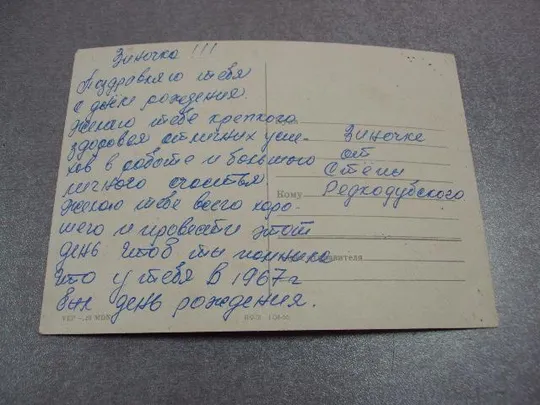 Зиночка !!!
Поздравляю тебя
с днём рождения.
Желаю тебе крепкого
здоровья отличных успе-
хов в работе и большого
личного счастья
Желаю тебе всего хоро-
шего и провести этот
день чтоб ты помнила
что у тебя в 1967 г
был день рождения.
Зиночке
от
Стёпы
Кому Редкодубского